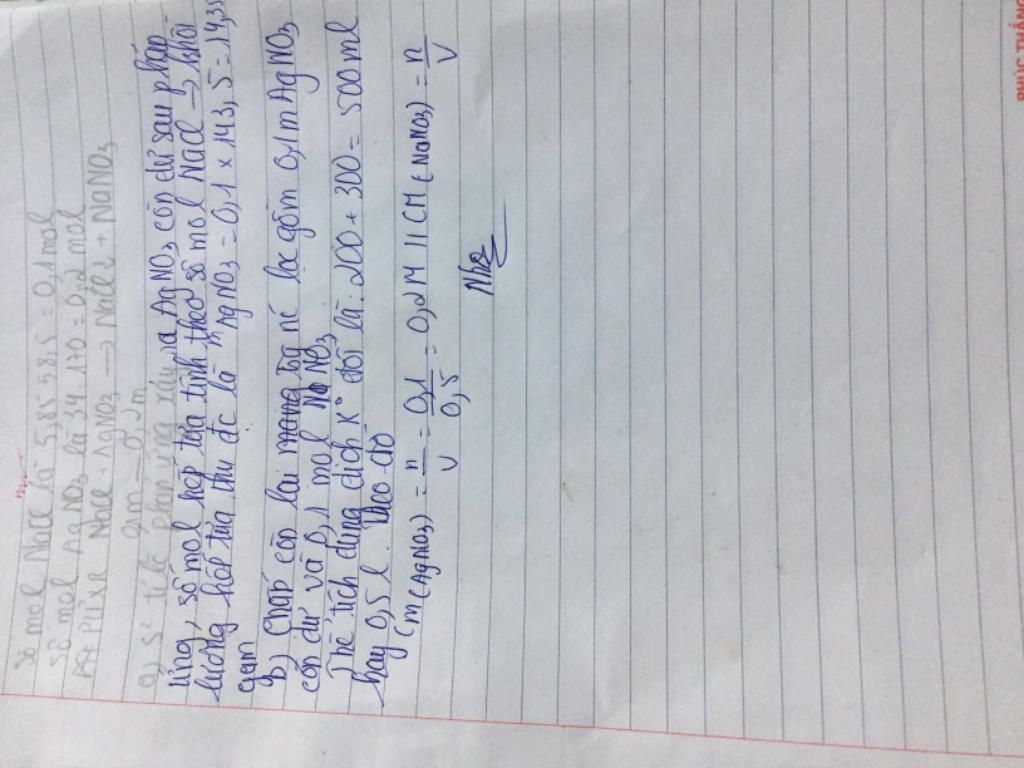 Số mol NaCl là 5,85 58,5 = 0,1 mol
Số mol AgNO3 là 34 170 = 0,2 mol
Pt PƯ xR NaCl + AgNO3 → NaCl↓ + NaNO3
0,1m = 0,2m
a) S² tỉ lệ phản ứng xảy ra AgNO3 còn dư sau phản
ứng, số mol kết tủa tính theo số mol NaCl → khối
lượng kết tủa thu đc là mAgNO3 = 0,1 x 143,5 = 14,35
gam
b) Chất còn lại nc lọc gồm 0,1m AgNO3
còn dư và 0,1 mol NaNO3
Thể tích dung dịch K° đổi là: 200 + 300 = 500ml
hay 0,5 l. Theo đó
Cm(AgNO3) = n/V = 0,1/0,5 = 0,2M || CM (NaNO3) = n/V
Nhoz
PHÚC THẮNG